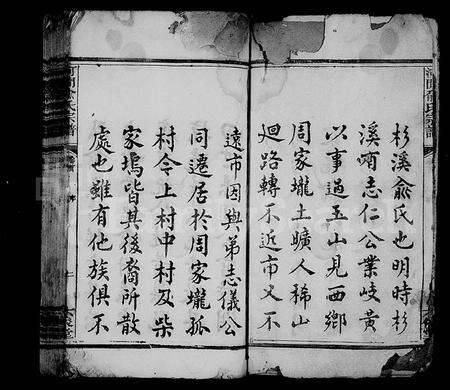 杉溪俞氏也明時杉
溪哨志仁公業岐黃
以事過玉山見西鄉
周家壠土曠人稀山
廻路轉不近市又不
遠市因與弟志儀公
同遷居於周家壠孤
村今上村中村及柴
家塢皆其後裔所散
處也雖有他族俱不